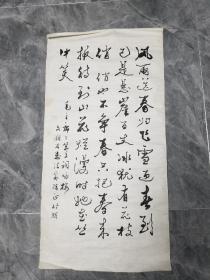 風雨送春归飞雪迎春到
已是悬崖百丈冰犹有花枝
俏俏也不争春只把春来
报待到山花烂漫时她在丛
中笑
毛主席卜算子词咏梅